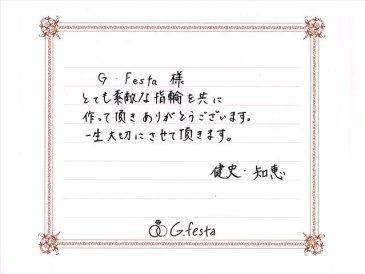 G・Festa 様
とても素敵な指輪を共に
作って頂きありがとうございます。
一生大切にさせて頂きます。
健史・知恵
G.festa